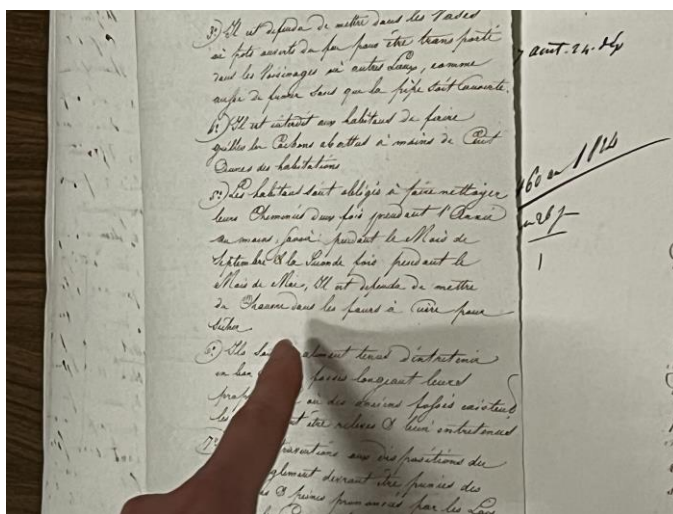 3°) Il est défendu de mettre dans les Vases
où pots ouverts du feu pour être transporté
dans les Voisinages où autres Lieux, comme
aussi de fumer sans que la pipe soit Couverte.
4°) Il est interdit aux habitans de faire
griller les Cochons abattus à moins de Cent
Aunes des habitations
5°) Les habitans sont obligés à faire nettoyer
leurs Cheminées deux fois pendant l'Année
au moins, savoir: pendant le Mois de
Septembre & la Seconde fois pendant le
Mois de Mai, Il est défendu de mettre
du Chanvre dans les fours à Cuire pour
sécher
6°) Ils tenus d'entretenir
en bon fossés longeant leurs
ou des anciens fossés existent
être relevés & bien entretenus
7° aux dispositions du
devront être punies des
& peines prononcées par les Lois
7 aout. 24.
1824
1